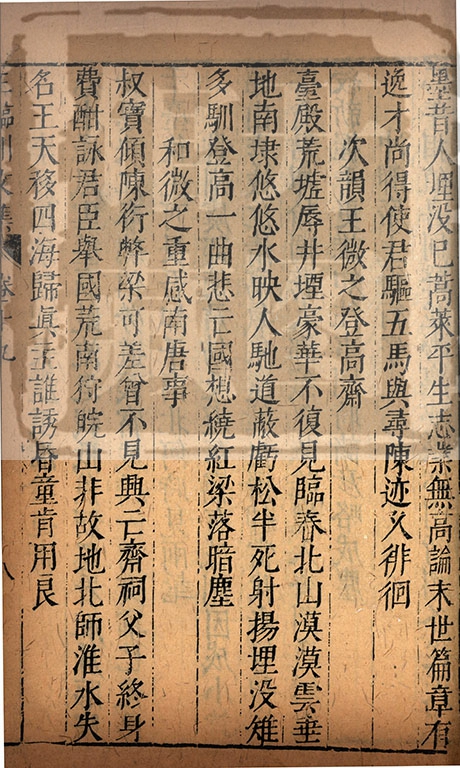 墨昔人埋没巳蒿萊平生志業無高論末世篇章有
逸才尚得使君驅五馬與尋陳迹久徘徊
次韻王微之登高齋
臺殿荒墟辱井堙豪華不復見臨春北山漠漠雲垂
地南埭悠悠水映人馳道蔽虧松半死射場埋没雉
多馴登高一曲悲亡國想繞紅梁落暗塵
和微之重感南唐事
叔寶傾陳衍弊梁可差曾不見興亡齋祠父子終身
費酣詠君臣舉國荒南狩皖山非故地北師淮水失
名王天移四海歸眞主誰誘昏童肯用良
王臨川文集 卷十九 八